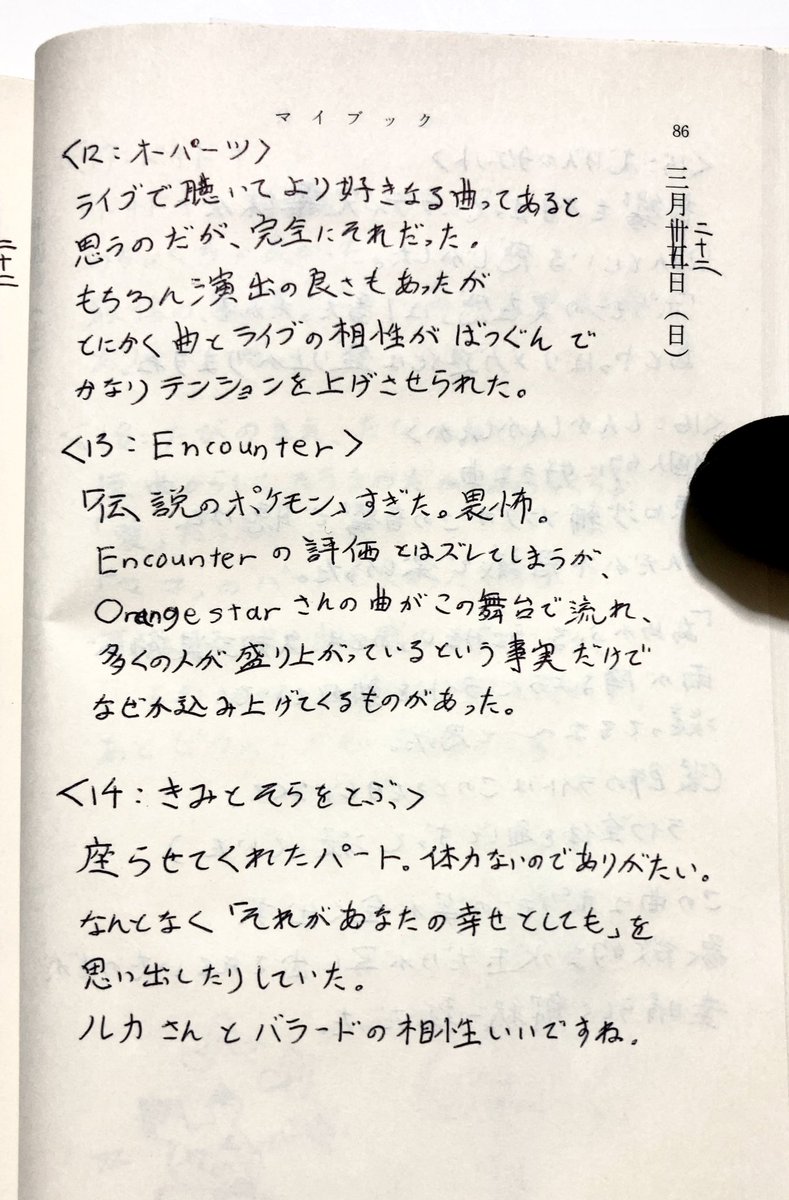 マイブック
86
三月卅五日(日)
二十三
<12:オーパーツ>
ライブで聴いてより好きなる曲ってあると
思うのだが、完全にそれだった。
もちろん演出の良さもあったが
とにかく曲とライブの相性がばつぐんで
かなりテンションを上げさせられた。
<13:Encounter>
「伝説のポケモン」すぎた。畏怖。
Encounterの評価とはズレてしまうが、
Orangestarさんの曲がこの舞台で流れ、
多くの人が盛り上がっているという事実だけで
なぜか込み上げてくるものがあった。
<14:きみとそらをとぶ、>
座らせてくれたパート。体力ないのでありがたい。
なんとなく「それがあなたの幸せとしても」を
思い出したりしていた。
ルカさんとバラードの相性いいですね。